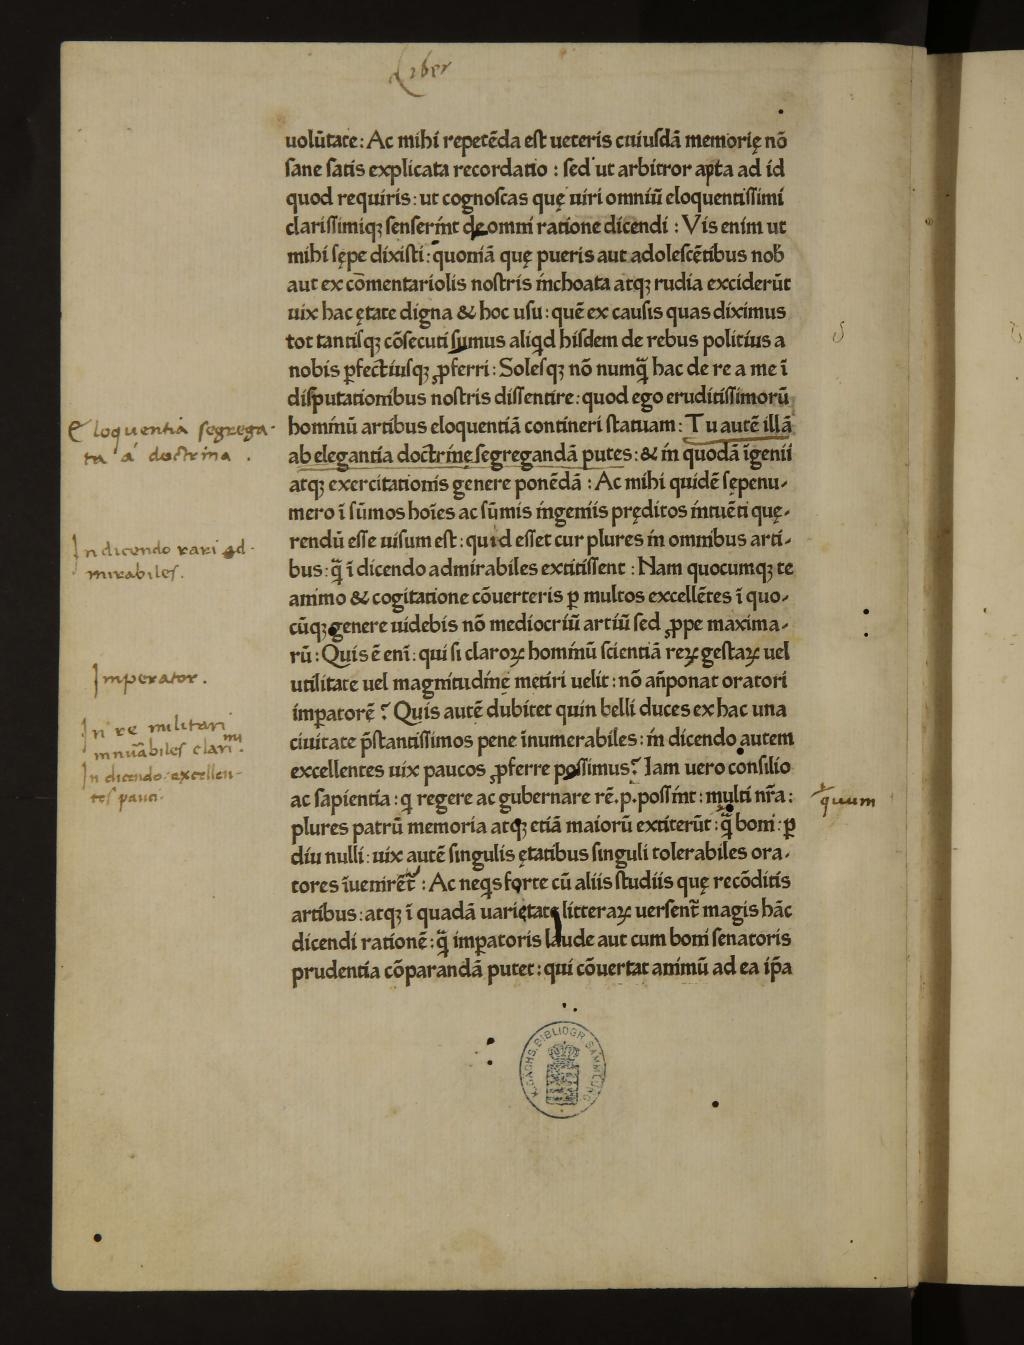 Liber
uolūtate: Ac mihi repetēda est ueteris cuiusdā memorię nō
sane satis explicata recordatio : sed ut arbitror apta ad id
quod requiris: ut cognoscas quę uiri omniū eloquentissimi
clarissimiqꝫ senserint de omni ratione dicendi : Vis enim ut
mihi sępe dixisti: quoniā quę pueris aut adolescētibus nob̄
aut ex cōmentariolis nostris inchoata atqꝫ rudia exciderūt
uix hac ętate digna & hoc usu: quē ex causis quas diximus
tot tantisqꝫ cōsecuti sumus aliqd hisdem de rebus politius a
nobis ꝑfectiusqꝫ ꝓferri: Solesqꝫ nō numq̄ hac de re a me ī
disputationibus nostris dissentire: quod ego eruditissimorū
hominū artibus eloquentiā contineri statuam: Tu autē illā
ab elegantia doctrinę segregandā putes: & in quodā īgenii
atqꝫ exercitationis genere ponēdā : Ac mihi quidē sępenu-
mero ī sūmos hoīes ac sūmis ingeniis pręditos intuēti quę-
rendū esse uisum est: quid esset cur plures in omnibus arti-
bus: q̄ ī dicendo admirabiles extitissent : Nam quocumqꝫ te
animo & cogitatione cōuerteris ꝑ multos excellētes ī quo-
cūqꝫ genere uidebis nō mediocriū artiū sed ꝓpe maxima-
rū: Quis ē enī: qui si claroꝝ hominū scientiā reꝝ gestaꝝ uel
utilitate uel magnitudinę metiri uelit: nō an̄ponat oratori
imꝑatorē ? Quis autē dubitet quin belli duces ex hac una
ciuitate p̄stantissimos pene īnumerabiles: in dicendo autem
excellentes uix paucos ꝓferre possimus? Iam uero consilio
ac sapientia: q̄ regere ac gubernare rē.p. possint: multi nr̄a:
plures patrū memoria atqꝫ etiā maiorū extiterūt: q̄ boni: ꝑ
diu nulli: uix autē singulis ętatibus singuli tolerabiles ora-
tores īuenirēt̄ : Ac neqs forte cū aliis studiis quę recōditis
artibus: atqꝫ ī quadā uarietate litteraꝝ uersent̄ magis hāc
dicendi rationē: q̄ imꝑatoris laude aut cum boni senatoris
prudentia cōparandā putet: qui cōuertat animū ad ea ip̄a
Eloquentia segrega-
ta a doctrina .
In dicendo rari ad-
mirabiles.
Imperator.
In re militari
innūabiles clari
mi.
In dicendo excellen-
tes pauci.
quum
K. SÄCHS. BIBLIOGR. SAMMLUNG